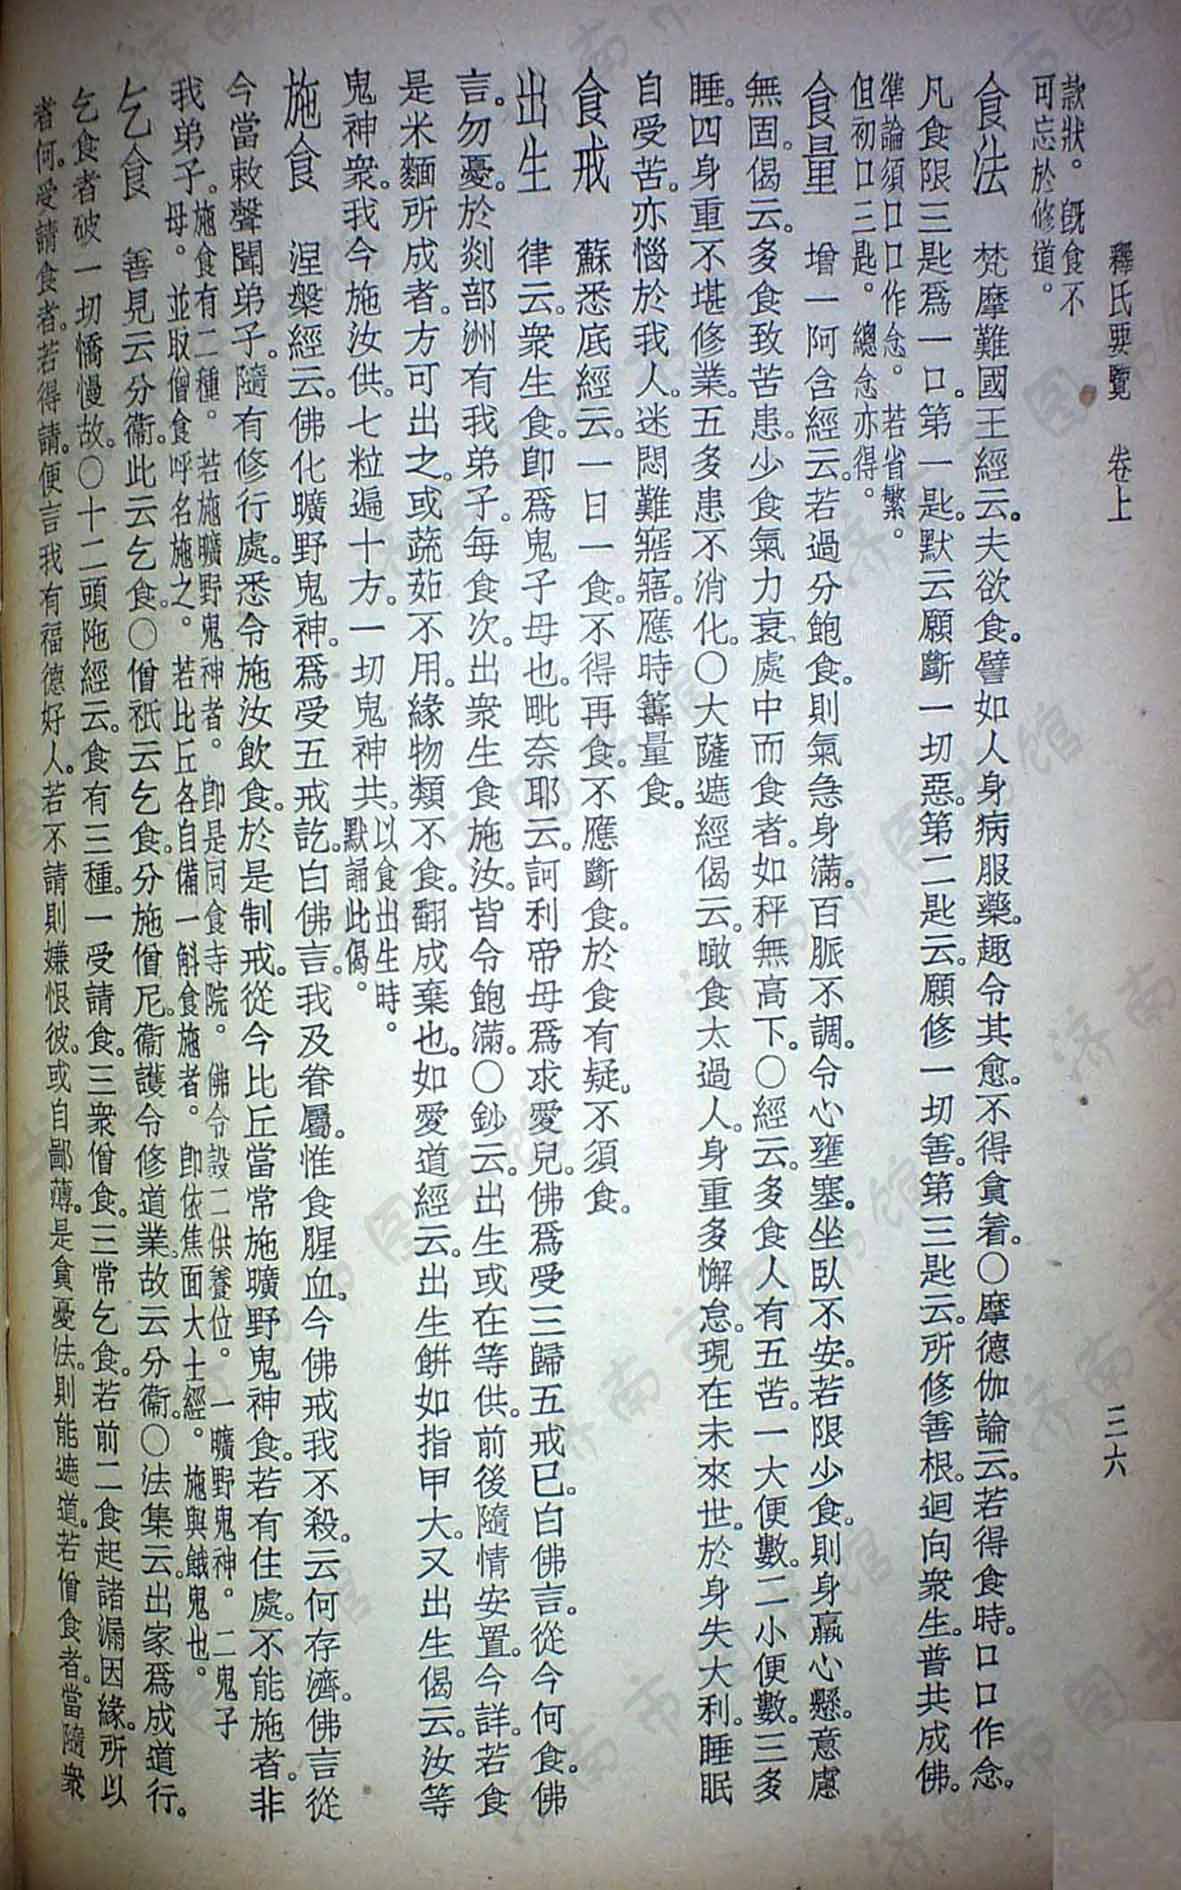 釋氏要覽　卷上　三六
款狀。旣食不
可忘於修道。
食法　梵摩難國王經云。夫欲食。譬如人身病服藥。趣令其愈。不得貪着。〇摩德伽論云。若得食時。口口作念。
凡食限三匙爲一口。第一匙。默云願斷一切惡。第二匙云。願修一切善。第三匙云。所修善根。迴向衆生。普共成佛。
準論須口口作念。若省繁。
但初口三匙。總念亦得。
食量　增一阿含經云。若過分飽食。則氣急身滿。百脈不調。令心壅塞。坐臥不安。若限少食。則身羸心懸。意慮
無固。偈云。多食致苦患。少食氣力衰。處中而食者。如秤無高下。〇經云。多食人有五苦。一大便數。二小便數。三多
睡。四身重不堪修業。五多患不消化。〇大薩遮經偈云。噉食太過人。身重多懈怠。現在未來世。於身失大利。睡眠
自受苦。亦惱於我人。迷悶難寤寤。應時籌量食。
食戒　蘇悉底經云。一日一食。不得再食。不應斷食。於食有疑。不須食。
出生　律云。衆生食。卽爲鬼子母也。毗奈耶云。訶利帝母爲求愛兒。佛爲受三歸五戒已。白佛言。從今何食。佛
言。勿憂。於剡部洲有我弟子。每食次。出衆生食施汝。皆令飽滿。〇鈔云。出生或在等供。前後隨情安置。今詳。若食
是米麵所成者。方可出之。或蔬茹不用。緣物類不食。翻成棄也。如愛道經云。出生餅如指甲大。又出生偈云。汝等
鬼神衆。我今施汝供。七粒遍十方。一切鬼神共。以食出生時。
默誦此偈。
施食　涅槃經云。佛化曠野鬼神。爲受五戒訖。白佛言。我及眷屬。惟食腥血。今佛戒我不殺。云何存濟。佛言從
今當敕聲聞弟子。隨有修行處。悉令施汝飲食。於是制戒。從今比丘當常施曠野鬼神食。若有住處。不能施者。非
我弟子。施食有二種。若施曠野鬼神者。卽是同食寺院。佛令設二供養位。一曠野鬼神。二鬼子
母。並取僧食呼名施之。若比丘各自備一斛食施者。卽依焦面大士經。施與餓鬼也。
乞食　善見云分衞。此云乞食。〇僧祇云乞食。分施僧尼。衞護令修道業。故云分衞。〇法集云。出家爲成道行。
乞食者破一切憍慢故。〇十二頭陁經云。食有三種。一受請食。二衆僧食。三常乞食。若前二食起諸漏因緣。所以
者何。受請食者。若得請。便言我有福德好人。若不請則嫌恨彼。或自鄙薄。是貪憂法。則能遮道。若僧食者。當隨衆